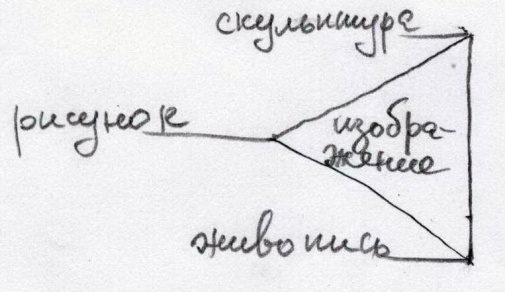 скульптура
рисунок
изобра-
жение
живопись